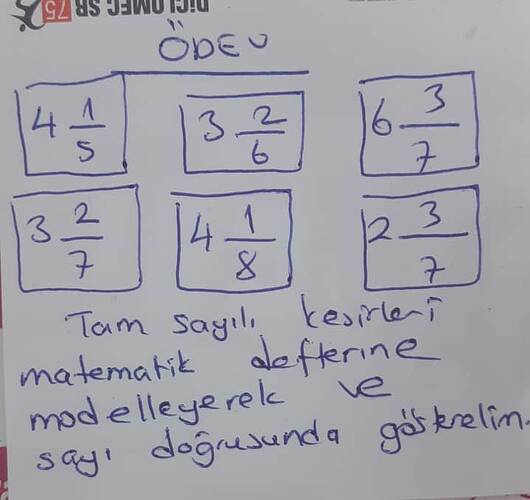 DİCLOMEC SR 75
ÖDEV
4 1/5 3 2/6 6 3/7
3 2/7 4 1/8 2 3/7
Tam sayılı kesirleri
matematik defterine
modelleyerek ve
sayı doğrusunda gösterelim.